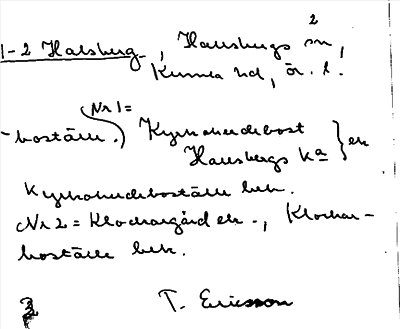 1-2 Halsberg, Hallsbergs sn,
2
Kumla hd, ör. l.
Nr 1 =
-boställe. Kyrkoherdebost
Hallsbergs ka } ek
Kyrkoherdeboställe bek.
Nr 2 = Klockargård ek., Klockar-
boställe bek.
T. Ericsson